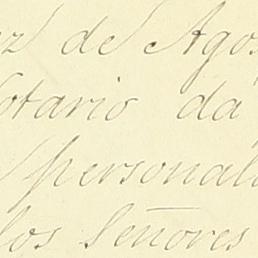 ez de Agos
otario da
personal
los Señores